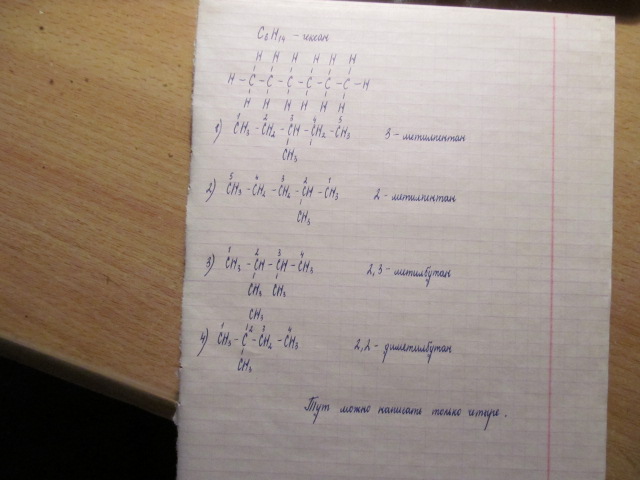 C₆H₁₄ - гексан
H H H H H H
H - C - C - C - C - C - C - H
H H H H H H
1 2 3 4 5
1) CH₃ - CH₂ - CH - CH₂ - CH₃ 3 - метилпентан
CH₃
5 4 3 2 1
2) CH₃ - CH₂ - CH₂ - CH - CH₃ 2 - метилпентан
CH₃
1 2 3 4
3) CH₃ - CH - CH - CH₃ 2,3 - метилбутан
CH₃ CH₃
CH₃
1 2 3 4
4) CH₃ - C - CH₂ - CH₃ 2,2 - диметилбутан
CH₃
Тут можно написать только четыре.